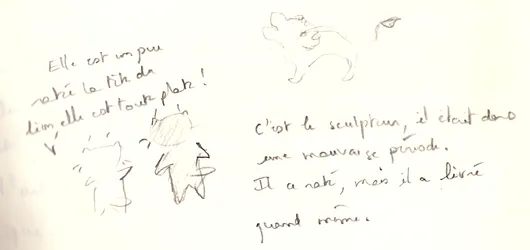 Elle est un peu
ratée la tête du
lion, elle est toute plate !
C'est le sculpteur, il était dans
une mauvaise période.
Il a raté, mais il a livré
quand même.